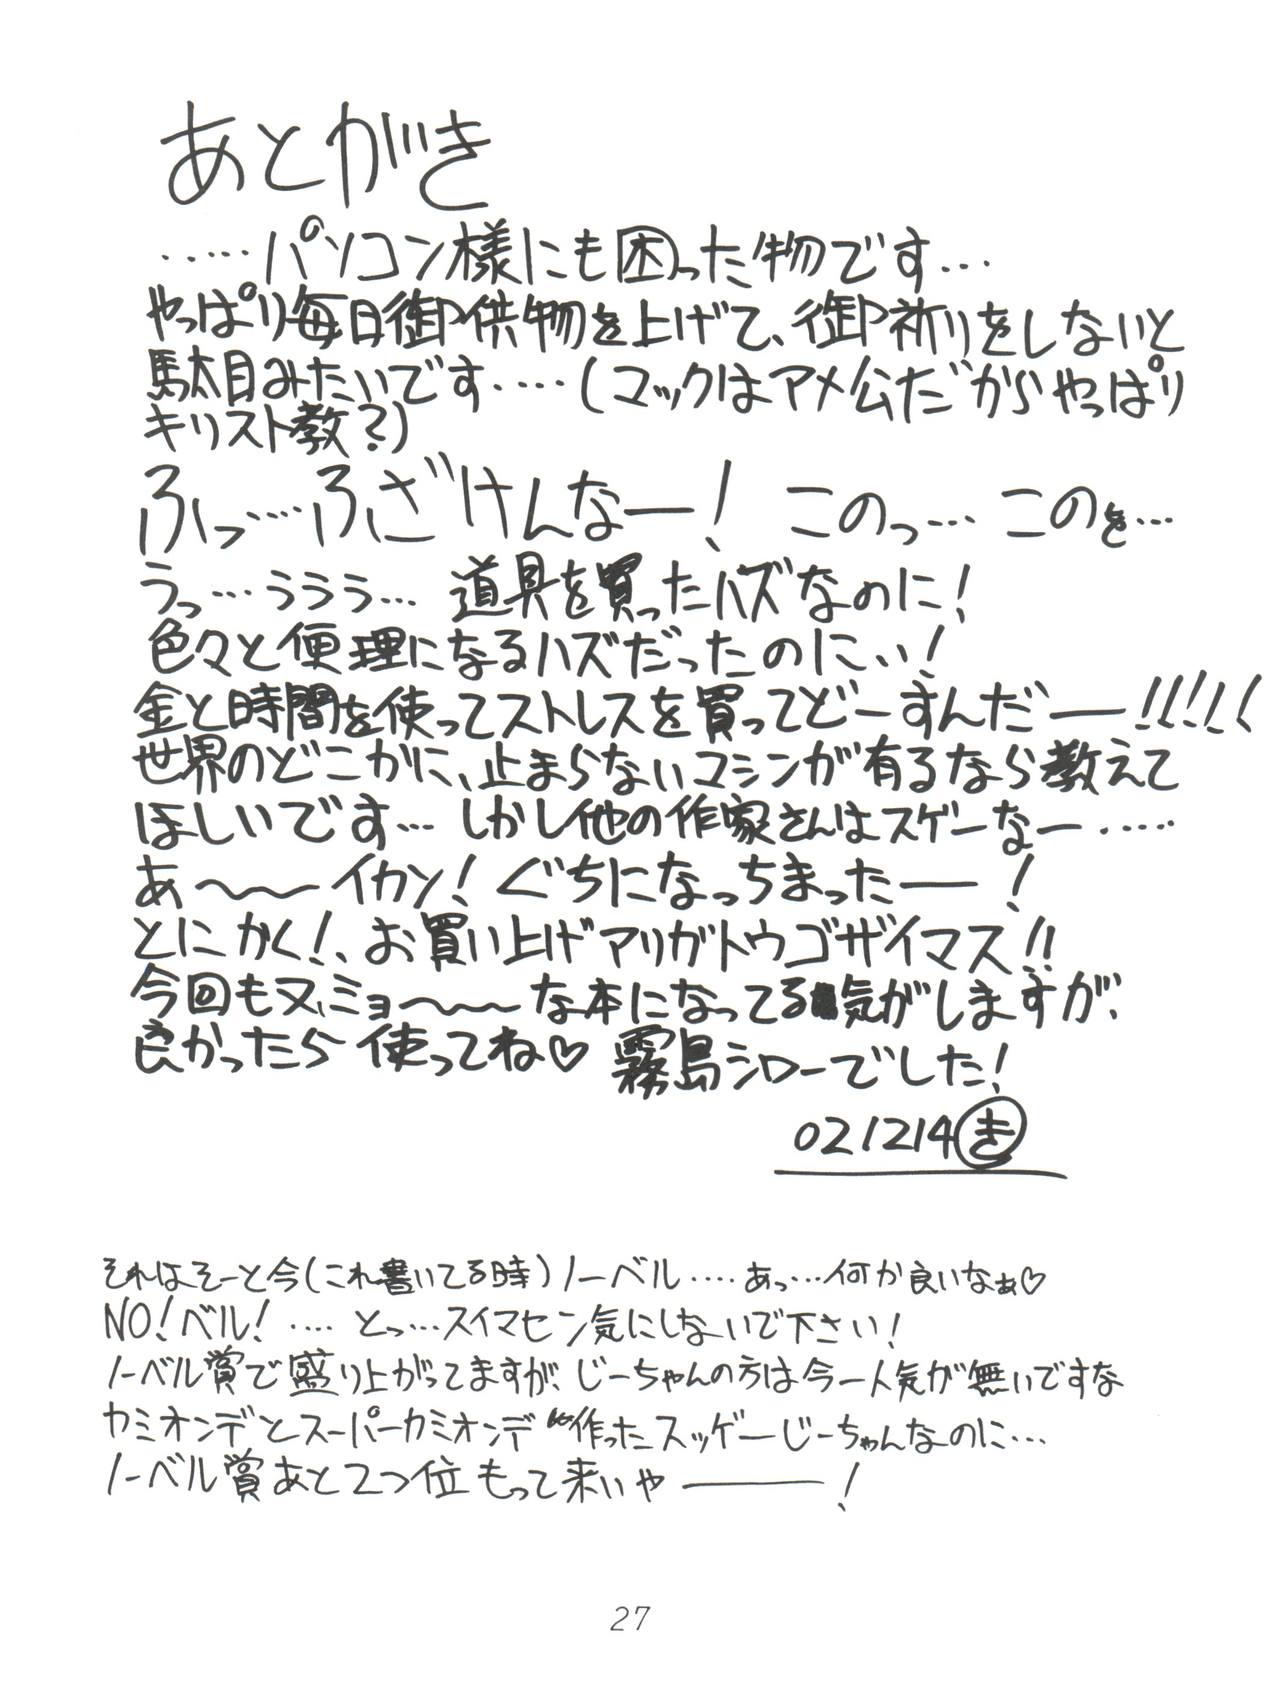 あとがき
……パソコン様にも困った物です…
やっぱり毎日御供物を上げて、御祈りをしないと
駄目みたいです‥‥(マックはアメ公だからやっぱり
キリスト教?)
ふっ…ふざけんなー! このっ… このぉ…
うっ…ううう… 道具を買ったハズなのに!
色々と便理になるハズだったのにぃ!
金と時間を使ってストレスを買ってどーすんだー!!!!!
世界のどこかに、止まらないマシンが有るなら教えて
ほしいです… しかし他の作家さんはスゲーなー‥‥‥
あ～～イカン! ぐちになっちまったー!
とにかく!、お買い上げアリガトウゴザイマス!!
今回も又、ミョ～～な本になってる気がしますが、
良かったら使ってね♡ 霧島シローでした!
021214 き
それはそーと今(これ書いてる時)ノーベル‥‥あっ…何か良いなぁ♡
NO!ベル!‥‥とっ…スイマセン気にしないで下さい!
ノーベル賞で盛り上がってますが、じーちゃんの方は今一人気が無いですな
カミオンデとスーパーカミオンデ作ったスッゲーじーちゃんなのに…
ノーベル賞あと2つ位もって来いやー!
27